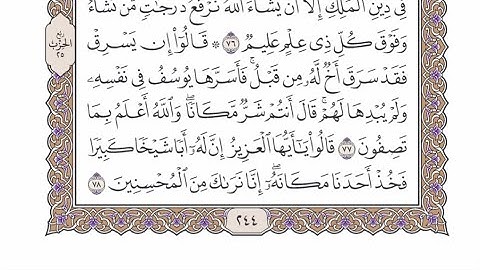 فِي دِينِ ٱلْمَلِكِ إِلَّآ أَن يَشَآءَ ٱللَّهُۚ نَرْفَعُ دَرَجَٰتٖ مَّن نَّشَآءُۗ
وَفَوْقَ كُلِّ ذِي عِلْمٍ عَلِيمٞ ٧٦ ۞ قَالُوٓاْ إِن يَسْرِقْ
فَقَدْ سَرَقَ أَخٞ لَّهُۥ مِن قَبْلُۚ فَأَسَرَّهَا يُوسُفُ فِي نَفْسِهِۦ
وَلَمْ يُبْدِهَا لَهُمْۚ قَالَ أَنتُمْ شَرّٞ مَّكَانٗاۖ وَٱللَّهُ أَعْلَمُ بِمَا
تَصِفُونَ ٧٧ قَالُواْ يَٰٓأَيُّهَا ٱلْعَزِيزُ إِنَّ لَهُۥٓ أَبٗا شَيْخٗا كَبِيرٗا
فَخُذْ أَحَدَنَا مَكَانَهُۥٓۖ إِنَّا نَرَىٰكَ مِنَ ٱلْمُحْسِنِينَ ٧٨
ربع
الحزب
٢٥
٢٤٤